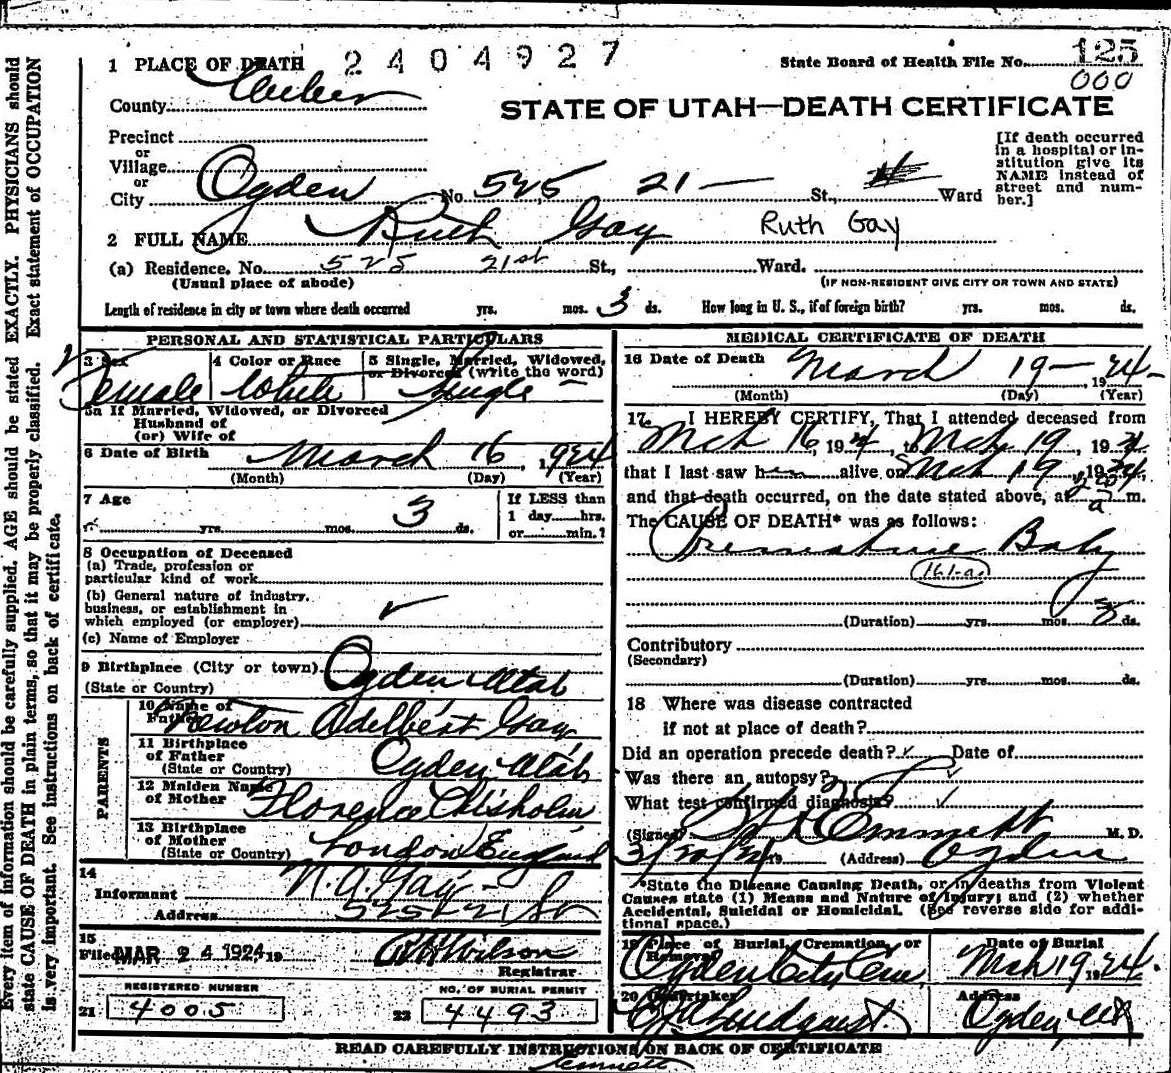 1 PLACE OF DEATH 2404927 State Board of Health File No. 125
000
County Weber
STATE OF UTAH—DEATH CERTIFICATE
Precinct
or
Village
or
City Ogden No. 525 21— St., Ward
[If death occurred
in a hospital or in-
stitution give its
NAME instead of
street and num-
ber.]
2 FULL NAME Ruth Gay Ruth Gay
(a) Residence. No. 525 21st St., Ward.
(Usual place of abode) (IF NON-RESIDENT GIVE CITY OR TOWN AND STATE)
Length of residence in city or town where death occurred yrs. mos. 3 ds. How long in U. S., if of foreign birth? yrs. mos. ds.
PERSONAL AND STATISTICAL PARTICULARS
3 Sex 4 Color or Race 5 Single, Married, Widowed,
or Divorced (write the word)
Female White Single
5a If Married, Widowed, or Divorced
Husband of
(or) Wife of
6 Date of Birth March 16, 1924
(Month) (Day) (Year)
7 Age If LESS than
1 day hrs.
yrs. mos. 3 ds. or min.?
8 Occupation of Deceased
(a) Trade, profession or
particular kind of work
(b) General nature of industry,
business, or establishment in
which employed (or employer)
(c) Name of Employer
9 Birthplace (City or town) Ogden Utah
(State or Country)
PARENTS
10 Name of
Father Newton Adelbert Gay
11 Birthplace
of Father Ogden Utah
(State or Country)
12 Maiden Name
of Mother Florence Chisholm
13 Birthplace
of Mother London England
(State or Country)
14
Informant N. A. Gay
Address 525-21 St
15
Filed MAR 24 1924 19 R H Wilson
Registrar
REGISTERED NUMBER NO. OF BURIAL PERMIT
21 4005 22 4493
MEDICAL CERTIFICATE OF DEATH
16 Date of Death March 19— 1924
(Month) (Day) (Year)
17. I HEREBY CERTIFY, That I attended deceased from
Mch 16, 1924, to Mch 19, 1924
that I last saw h alive on Mch 19, 1924,
and that death occurred, on the date stated above, at a m.
The CAUSE OF DEATH* was as follows:
Premature Baby
161-a.
(Duration) yrs. mos. 3 ds.
Contributory
(Secondary)
(Duration) yrs. mos. ds.
18 Where was disease contracted
if not at place of death?
Did an operation precede death? Date of
Was there an autopsy?
What test confirmed diagnosis?
(Signed) Emmett M. D.
3/20/24 (Address) Ogden
*State the Disease Causing Death, or in deaths from Violent
Causes state (1) Means and Nature of Injury; and (2) whether
Accidental, Suicidal or Homicidal. (See reverse side for addi-
tional space.)
19 Place of Burial, Cremation, or Removal Date of Burial
Ogden City Cem. Mch 19 1924.
20 Undertaker Address
Lindquist. Ogden Ut
READ CAREFULLY INSTRUCTIONS ON BACK OF CERTIFICATE
Emmett
Every item of information should be carefully supplied. AGE should be stated EXACTLY. PHYSICIANS should
state CAUSE OF DEATH in plain terms, so that it may be properly classified. Exact statement of OCCUPATION
is very important. See instructions on back of certificate.